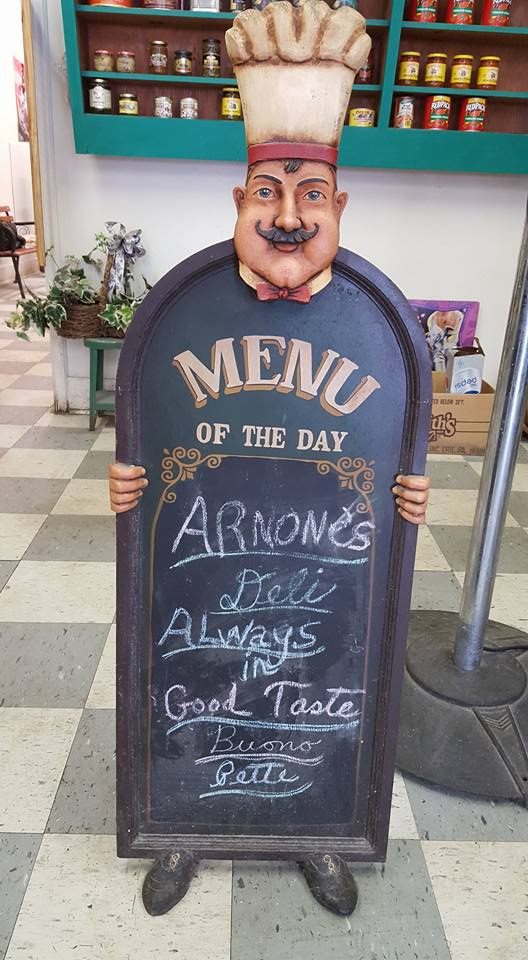 MENU
OF THE DAY
ARNONE'S
Deli
ALWAYS
in
Good Taste
Buono
Pette
REDPACK
REDPACK